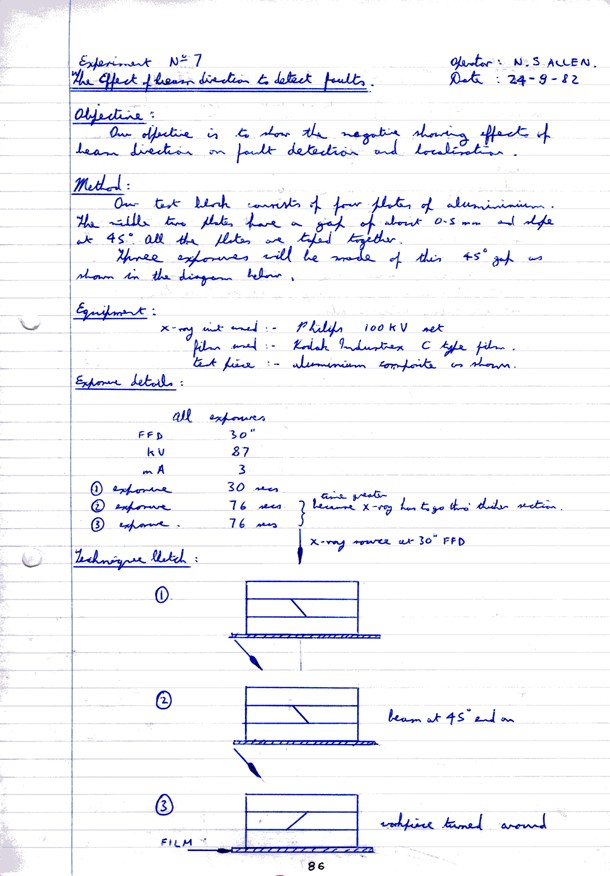 Experiment Nº 7
Operator : N. S ALLEN.
"The Effect of beam direction to detect faults.
Date : 24-9-82
Objective :
Our objective is to show the negative showing effects of
beam direction on fault detection and localisation.
Method :
Our test block consists of four plates of aluminium.
The middle two plates have a gap of about 0.5 mm and slope
at 45°. All the plates are taped together.
Three exposures will be made of this 45° gap as
shown in the diagram below.
Equipment :
x-ray unit used :- Philips 100 KV set
film used :- Kodak Industrex C type film.
test piece :- aluminium composite as shown.
Exposure details :
All exposures
FFD 30"
kU 87
mA 3
① exposure 30 secs
time greater
② exposure 76 secs } because x-ray has to go thro' thicker section.
③ exposure. 76 secs
x-ray source at 30" FFD
Technique Sketch :
①
②
beam at 45° end on
③
workpiece turned around
FILM
86